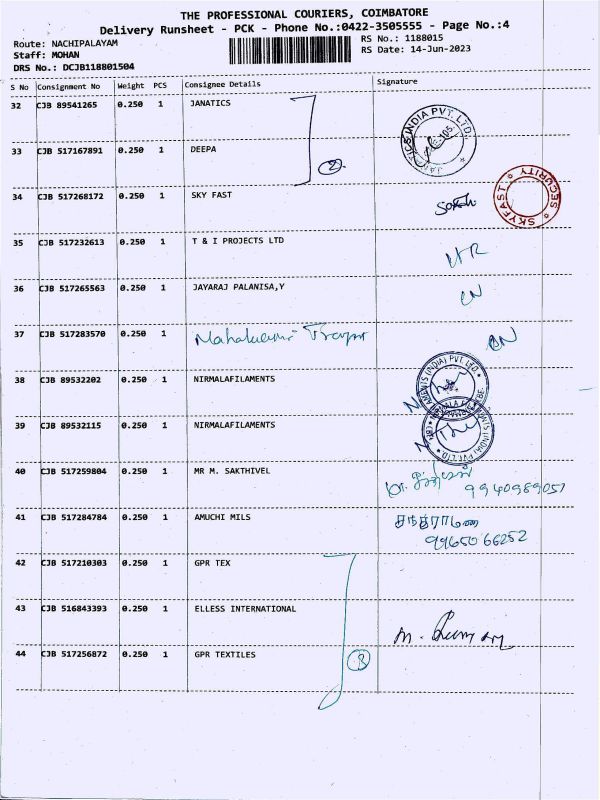 THE PROFESSIONAL COURIERS, COIMBATORE
Delivery Runsheet - PCK - Phone No.:0422-3505555 - Page No.:4
Route: NACHIPALAYAM
RS No.: 1188015
Staff: MOHAN
RS Date: 14-Jun-2023
DRS No.: DCJB118801504
S No Consignment No Weight PCS Consignee Details Signature
32 CJB 89541265 0.250 1 JANATICS
33 CJB 517167891 0.250 1 DEEPA
2
34 CJB 517268172 0.250 1 SKY FAST
SKYFAST SECURITY
35 CJB 517232613 0.250 1 T & I PROJECTS LTD
36 CJB 517265563 0.250 1 JAYARAJ PALANISA,Y
37 CJB 517283570 0.250 1
38 CJB 89532202 0.250 1 NIRMALAFILAMENTS
39 CJB 89532115 0.250 1 NIRMALAFILAMENTS
40 CJB 517259804 0.250 1 MR M. SAKTHIVEL
9940989051
41 CJB 517284784 0.250 1 AMUCHI MILS
99650 66252
42 CJB 517210303 0.250 1 GPR TEX
43 CJB 516843393 0.250 1 ELLESS INTERNATIONAL
44 CJB 517256872 0.250 1 GPR TEXTILES
3